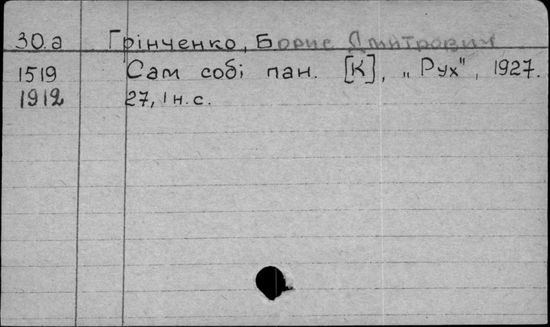 30.а Грінченко, Борис Дмитрович
1519 Сам собі пан. [К], „Рух", 1927.
1912 27, 1 н. с.